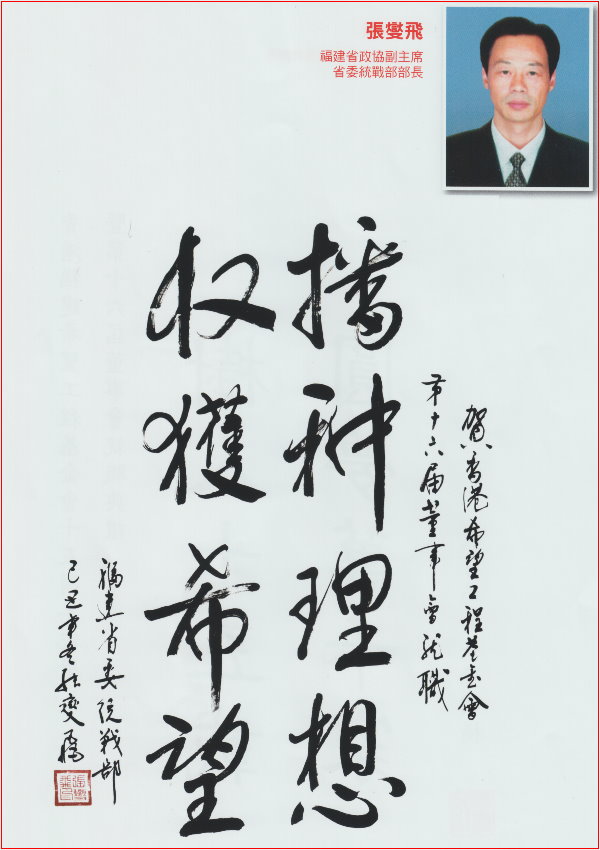 張燮飛
福建省政協副主席
省委統戰部部長
賀香港希望工程基金會
第十六届董事會就職
播种理想
収獲希望
福建省委统戰部
己丑年冬张燮飛